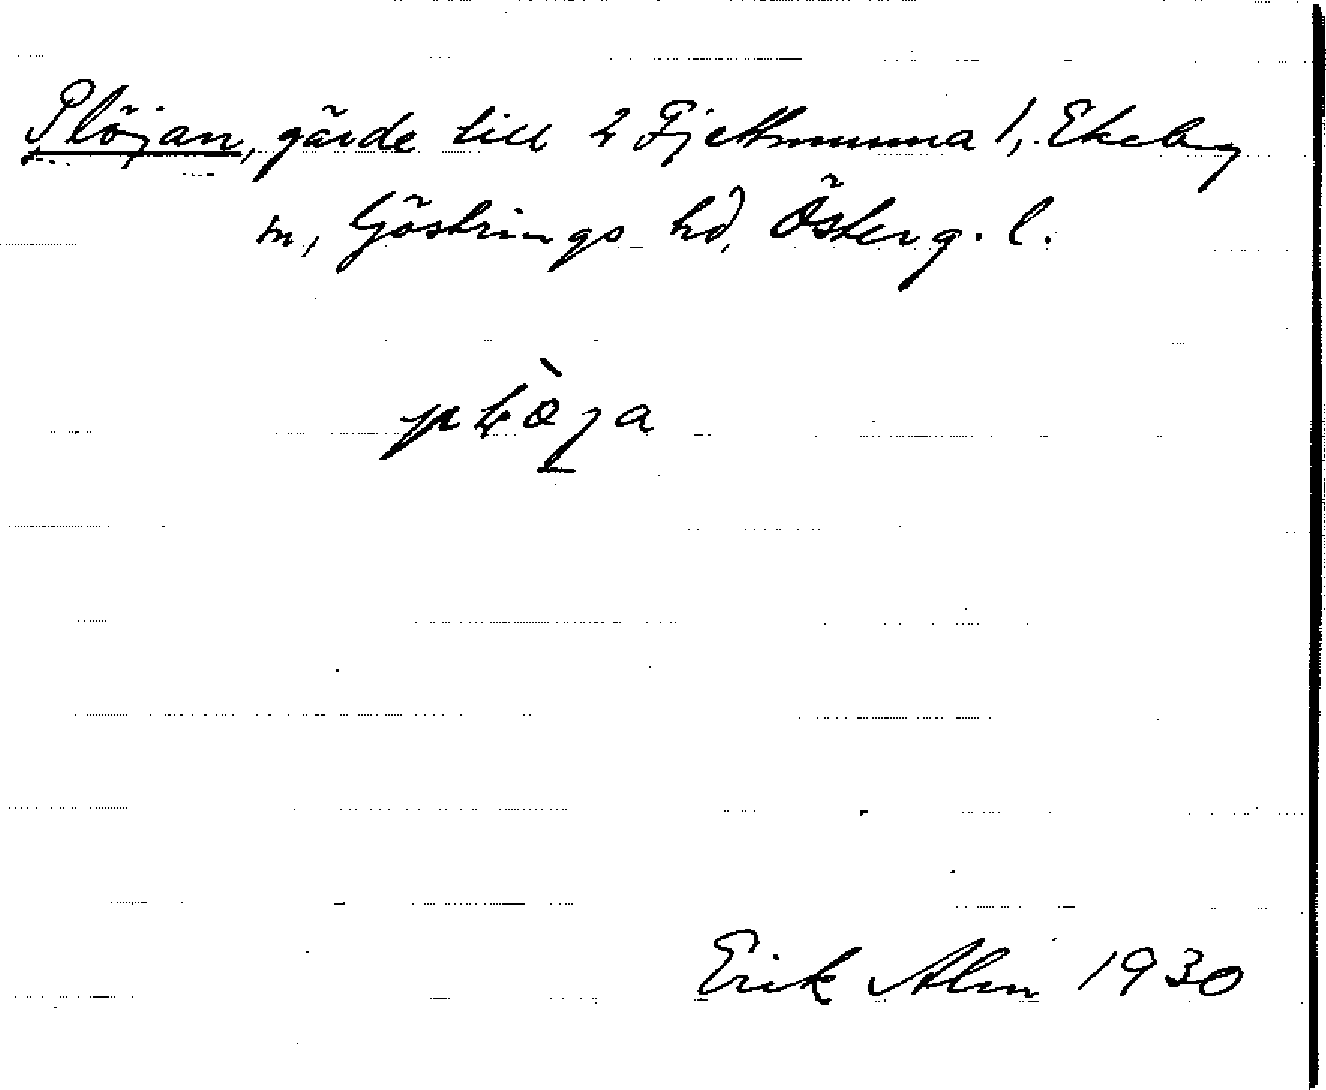 Plöjan, gärde till 2 Fjettmunna 1, Ekeby
m, Göstrings hd, Österg. l.
Erik Alm 1930